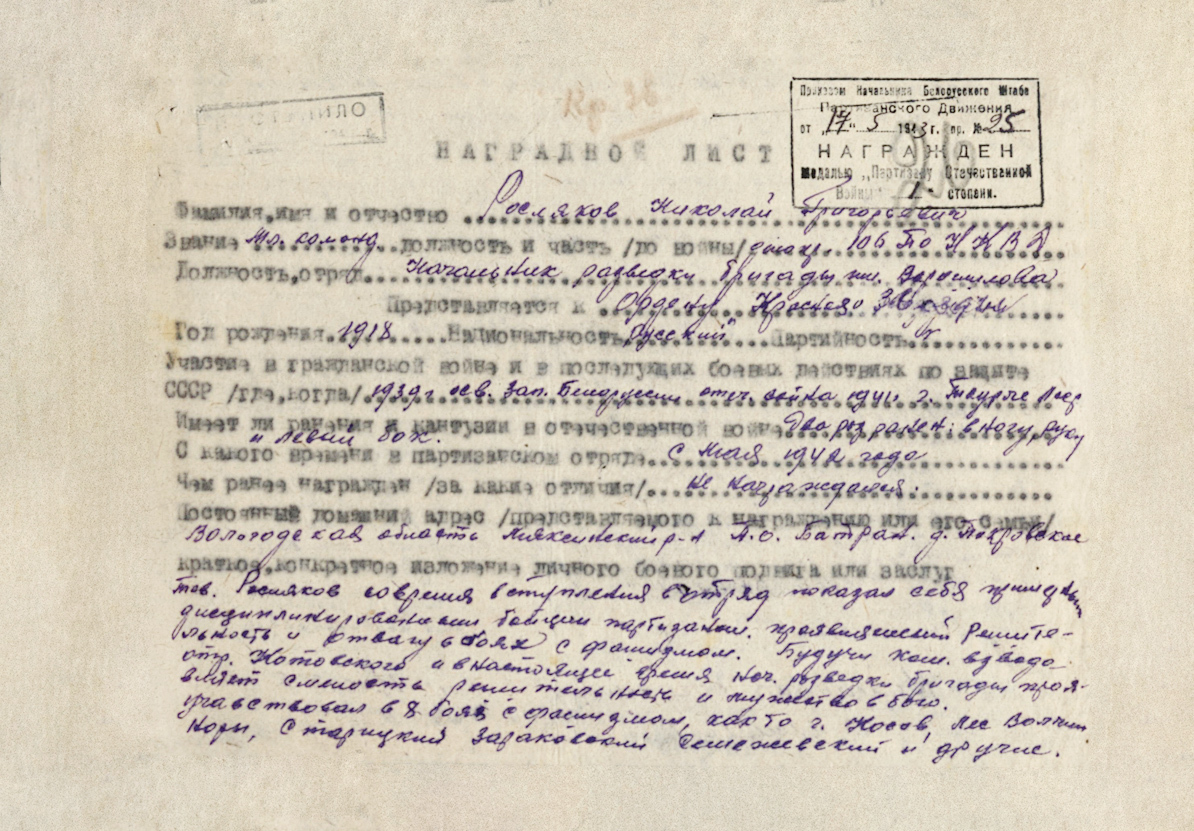 Приказом Начальника Белорусского Штаба
Партизанского Движения
от „17“ 5 1943 г. пр. № 25
НАГРАЖДЕН
медалью „Партизану Отечественной
Войны“ 1 степени.
НАГРАДНОЙ ЛИСТ
Фамилия,имя и отчество Росляков Николай Григорьевич
Звание Мл. команд. должность и часть /до войны/ 106 ПО НКВД
Должность,отряд Начальник разведки бригады им. Ворошилова
Представляется к Ордену Красная Звезда
Год рождения 1918 Национальность русский Партийность
Участие в гражданской войне и в последующих боевых действиях по защите
СССР /где,когда/ 1939 г осв. Зап. Белоруссии отеч. война 1941 г.
Имеет ли ранения и кантузии в отечественной войне Два раза ранен: в ногу, руку
и левый бок.
С какого времени в партизанском отряде с Мая 1942 года
Чем ранее награжден /за какие отличия/ Не награждался.
Постоянный домашний адрес /представляемого к награждению или его семьи/
Вологодская область Мяксинский р-н П.О. Батран. д. Покровское
краткое,конкретное изложение личного боевого подвига или заслуг
тов. Росляков со время вступления в отряд показал себя
дисциплинированным бойцом партизаном. проявивший решите-
льность и отвагу в боях с фашизмом. Будучи ком. взвода
отр. Котовского и в настоящее время нач. разведки бригады проя-
вляет смелость решительность и мужество в бою.
участвовал в 8 боях с фашизмом, как то г. Носав, Лес Волчьи
Норы, Старицкий Зараковский Семежевский и другие.